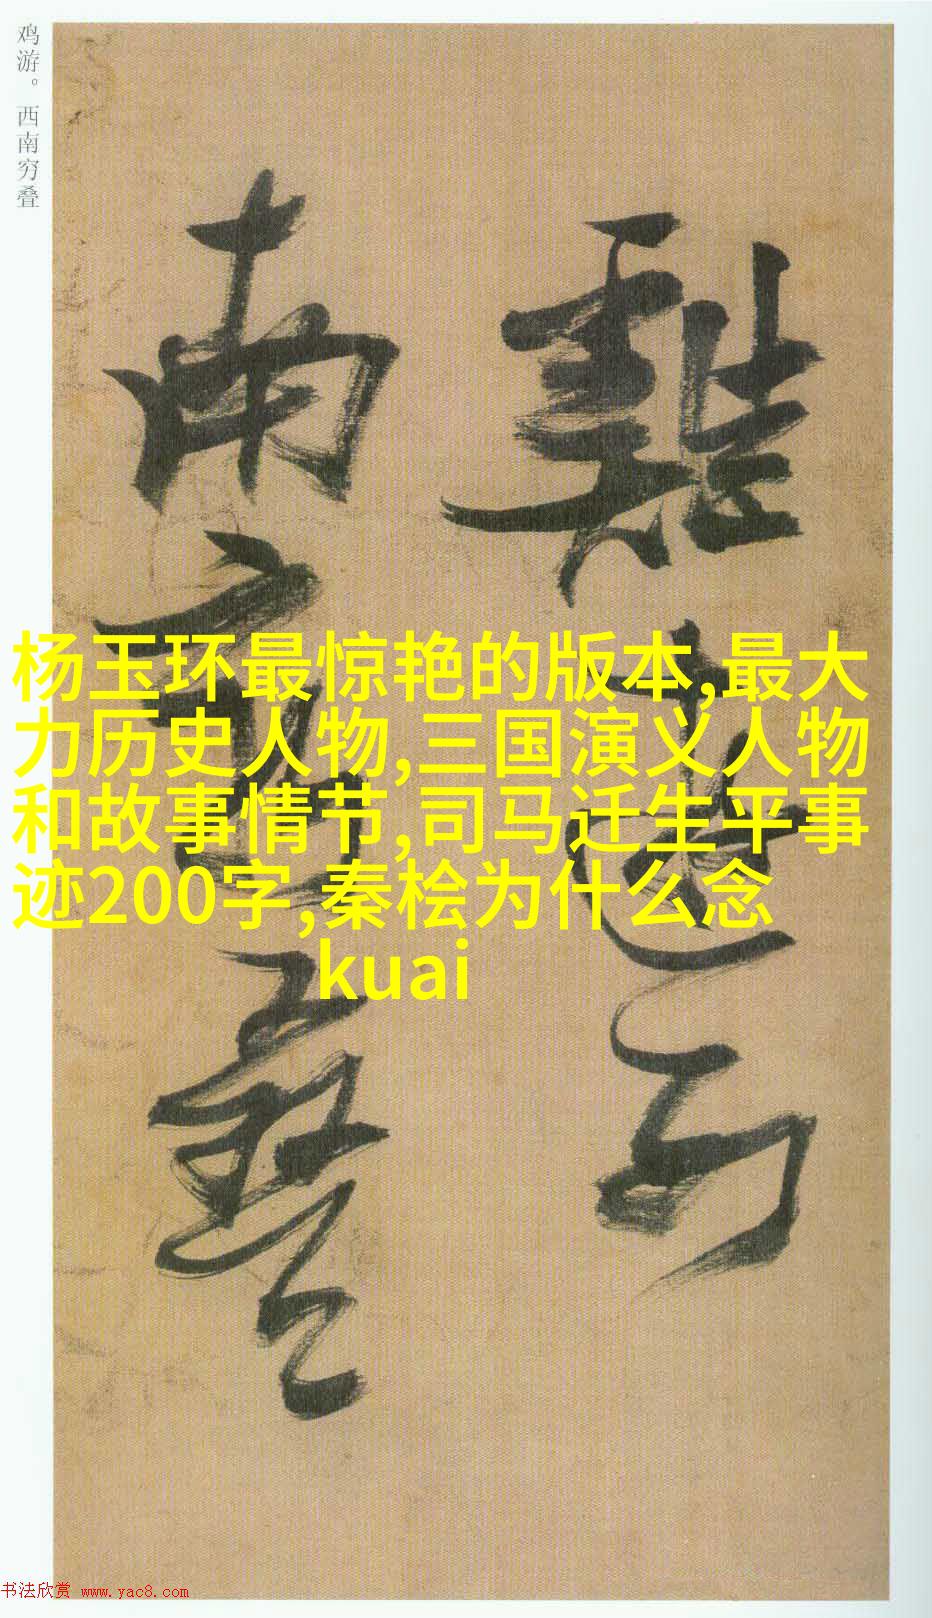 鸡游。西南穷叠
雞遊西
南穷叠
杨玉环最惊艳的版本,最大
力历史人物,三国演义人物
和故事情节,司马迁生平事
迹200字,秦桧为什么念
kuai
书法欣赏 www.yac8.com